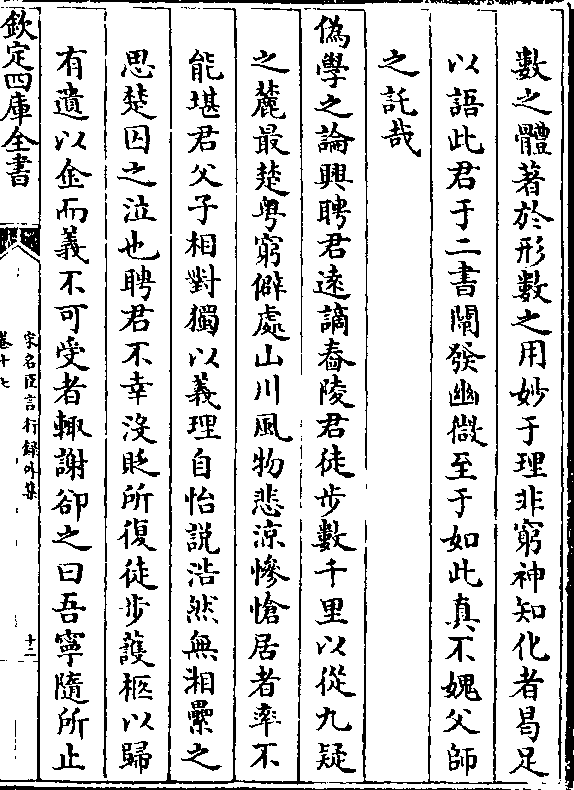 數之體著於形數之用妙于理非窮神知化者曷足
以語此君于二書闡發幽微至于如此真不媿父師
之託哉
偽學之論興聘君遠謫舂陵君徒步數千里以從九疑
之麓最楚粤窮僻處山川風物悲涼慘愴居者率不
能堪君父子相對獨以義理自怡說浩然無湘纍之
思楚囚之泣也聘君不幸沒貶所復徒步䕶柩以歸
有遺以金而義不可受者輙謝卻之曰吾寧隨所止
欽定四庫全書
宋名臣言行録外集
卷十七
十二